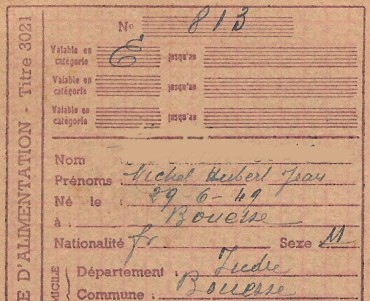 E D'ALIMENTATION - Titre 3021
N° 813
Valable en catégorie E jusqu'au
Valable en catégorie jusqu'au
Valable en catégorie jusqu'au
Nom
Prénoms : Michel Hubert Jean
Né le : 29-6-49
à : Bouesse
Nationalité fr Sexe M
MICILE
Département : Indre
Commune : Bouesse